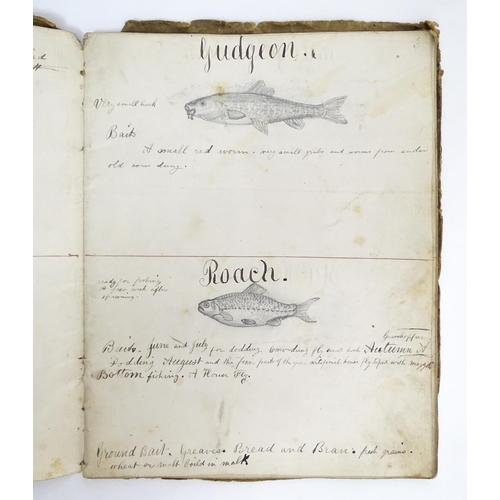 Gudgeon.
Very small hook
Baits
A small red worm. very small grubs and worms from under
old cow dung.
Roach.
ready for fishing
a few week after
spawning.
Baits. June and July for dodding. fly and Autumn A
Dodding August and the four parts of the house fly with
Bottom fishing. A House Fly.
Ground Bait. Greaves. Bread and Bran. fresh grains.
wheat or malt boild in malk